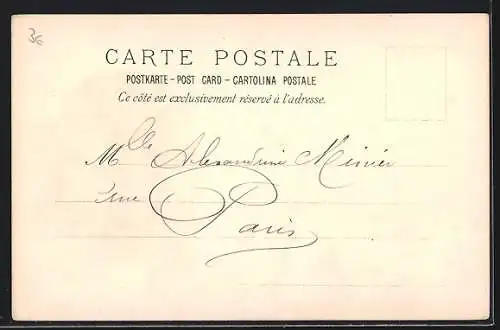 36
CARTE POSTALE
POSTKARTE – POST CARD – CARTOLINA POSTALE
Ce côté est exclusivement réservé à l'adresse.
Mlle Alexandrine
Paris